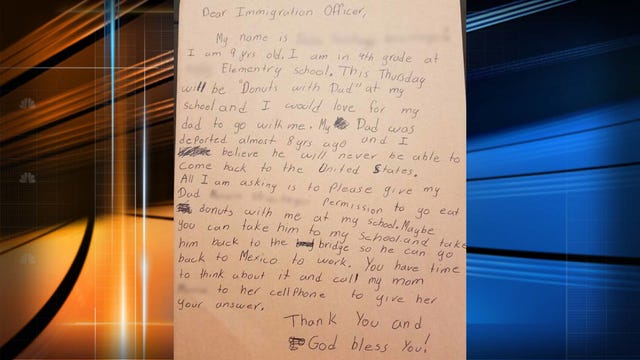 Dear Immigration Officer,
My name is
I am 9 yrs old. I am in 4th grade at
Elementry school. This Thursday
will be "Donuts with Dad" at my
school and I would love for my
dad to go with me. My Dad was
deported almost 8 yrs ago and I
believe he will never be able to
come back to the United States.
All I am asking is to Please give my
Dad permission to go eat
donuts with me at my school. Maybe
you can take him to my school and take
him back to the bridge so he can go
back to Mexico to work. You have time
to think about it and call my mom
to her cellphone to give her
your answer.
Thank You and
God bless You!